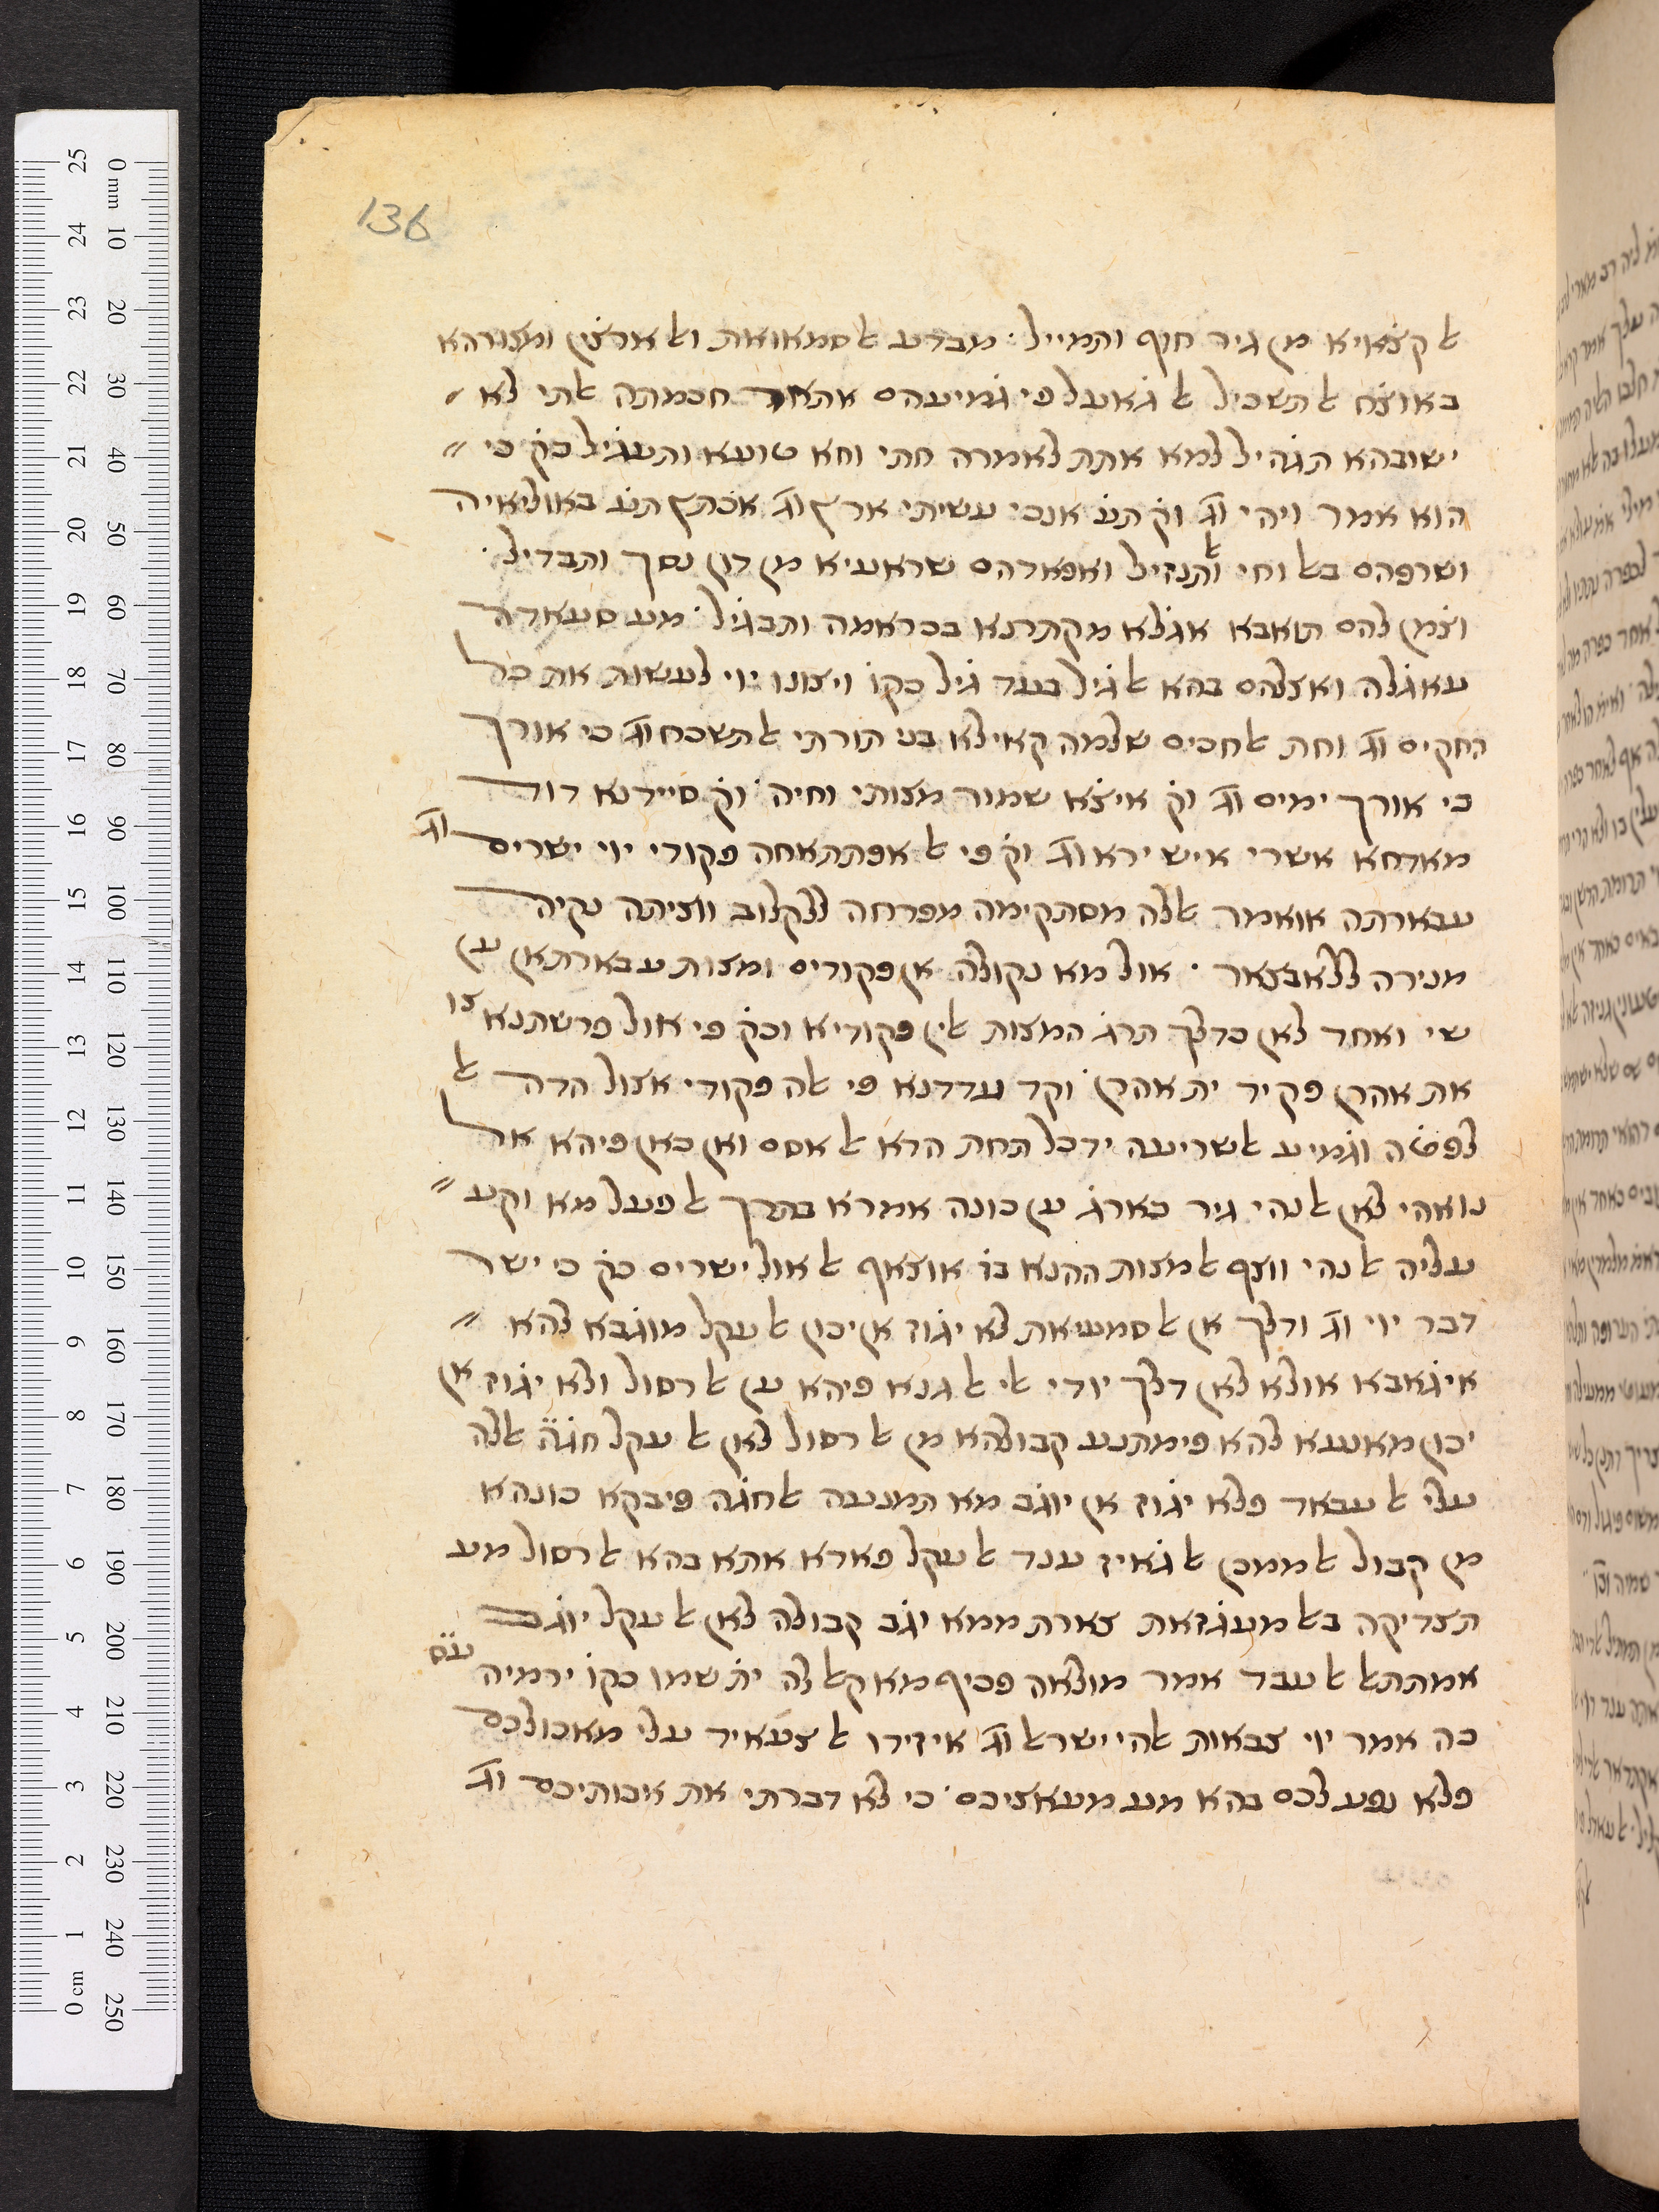 136
אלקצאיא מן גיר חיף ותמייל׳ מבדע אלסמאואת ואלארצ̇ין ומצורהא
באוצ̇ח אלתשכיל אלג̇אעל פי ג̇מיעהם אתאר חכמתה אלתי לא
ישובהא תג̇היל למא אתת לאמרה חתי וחא טועא ותעג̇יל כק̇ כי
הוא אמר ויהי וג̇ וק̇ תע̇ אנכי עשיתי ארץ וג̇ אכ̇תץ תע̇ באוליאיה
ושרפהם באלוחי ואלתנזיל ואפאדהם שראעיא מן דון נסך ותבדיל׳
וצ̇מן להם תואבא אג̇לא מקתרנא בכראמה ותבג̇יל׳ מע סעאדה
עאג̇לה ואצלהם בהא אלג̇יל בעד ג̇יל כקו̇ ויצונו ייי לעשות את כל
החקים וג̇ וחת אלחכים שלמה קאילא בני תורתי אל תשכח וג̇ כי אורך
כי אורך ימים וג̇ וק̇ איצ̇א שמור מצותי וחיה׳ וק̇ סיידנא דוד
מאדחא אשרי איש ירא וג̇ וק̇ פי אלאפתתאחה פקודי ייי ישרים וג̇
עבארתה אואמר אללה מסתקימה מפרחה ללקלוב ווציתה נקיה
מנירה ללאבצאר ׳ אול מא נקולה אן פקודים ומצות עבארתאן ען
שי ואחד לאן כדלך תרג̇ המצות אלין פקודיא וכק̇ פי אול פרשתנא צו
את אהרן פקיד ית אהרן׳ וקד עדדנא פי אלה פקודי אצול הדה אל
לפט̇ה וג̇מיע אלשריעה ידכ̇ל תחת הדא אלאסם ואן כאן פיהא אל
נואהי לאן אלנהי גיר כ̇ארג̇ ען כונה אמרא בתרך אלפעל מא וקע
עליה אלנהי ווצף אלמצות ההנא בג̇ אוצאף אלאול ישרים כק̇ כי ישר
דבר ייי וג̇ ודלך אן אלסמעיאת לא יג̇וז אן יכון אלעקל מוג̇בא להא
איג̇אבא אולא לאן דלך יודי אלי אלגנא פיהא ען אלרסול ולא יג̇וז אן
יכון מאנעא להא פימתנע קבולהא מן אלרסול לאן אלעקל חג̇ה̈ אללה
עלי אלעבאד פלא יג̇וז אן יוג̇ב מא תמנעה אלחג̇ה פיבקא כונהא
מן קבול אלממכן אלג̇איז ענד אלעקל פאדא אתא בהא אלרסול מע
תצדיקה באלמעג̇זאת צארת ממא יג̇ב קבולה לאן אלעקל יוג̇ב
אמתתאל אלעבד אמר מולאה פכיף מא קאל לה ית̇ שמו כקו̇ ירמיה ע̇ס̇
כה אמר ייי צבאות אלהי ישראל וג̇ אי זידו אלצעאיד עלי מאכולכם
פלא נפע לכם בהא מע מעאציכם׳ כי לא דברתי את אבותיכם וג̇